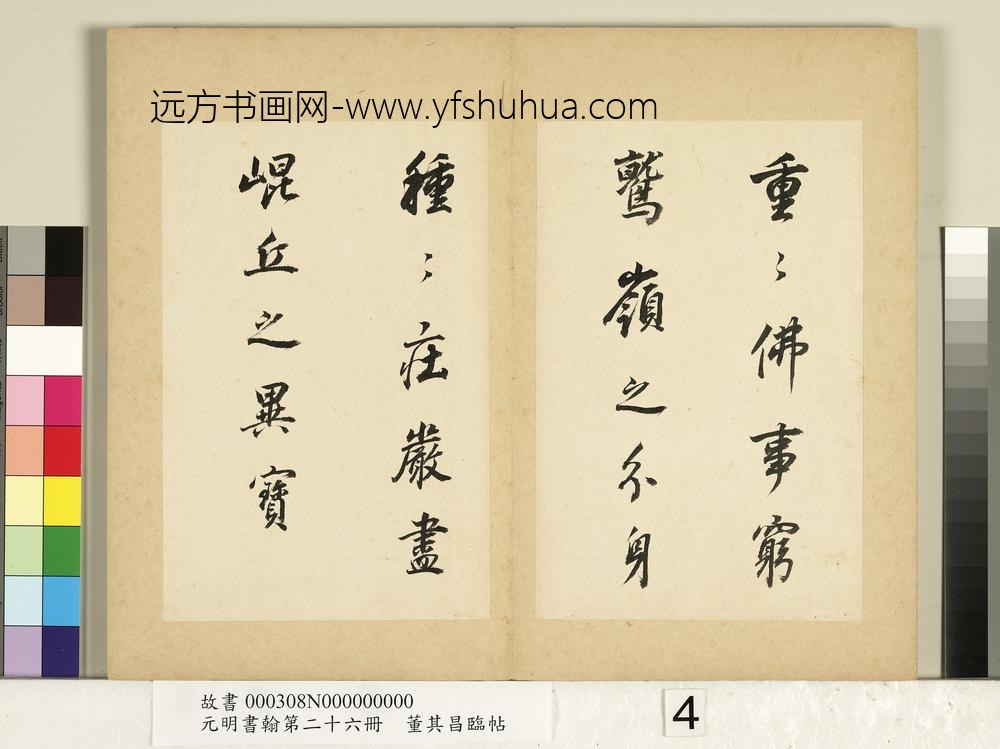 远方书画网-www.yfshuhua.com
重〻佛事窮
鷲嶺之分身
種〻莊嚴盡
崐丘之異寶
故書 000308N000000000
元明書翰第二十六冊 董其昌臨帖
4